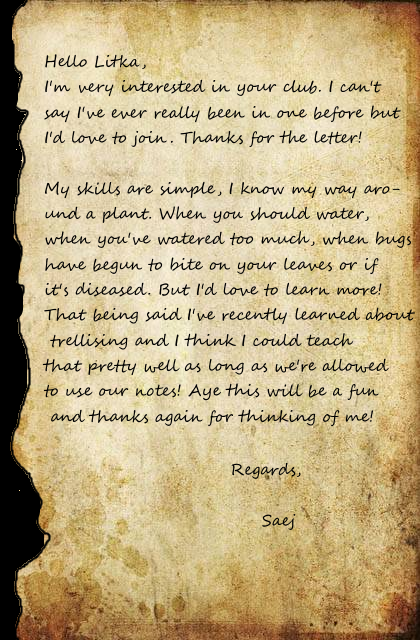 Hello Litka,
I'm very interested in your club. I can't
say I've ever really been in one before but
I'd love to join. Thanks for the letter!
My skills are simple, I know my way aro-
und a plant. When you should water,
when you've watered too much, when bugs
have begun to bite on your leaves or if
it's diseased. But I'd love to learn more!
That being said I've recently learned about
trellising and I think I could teach
that pretty well as long as we're allowed
to use our notes! Aye this will be a fun
and thanks again for thinking of me!
Regards,
Saej